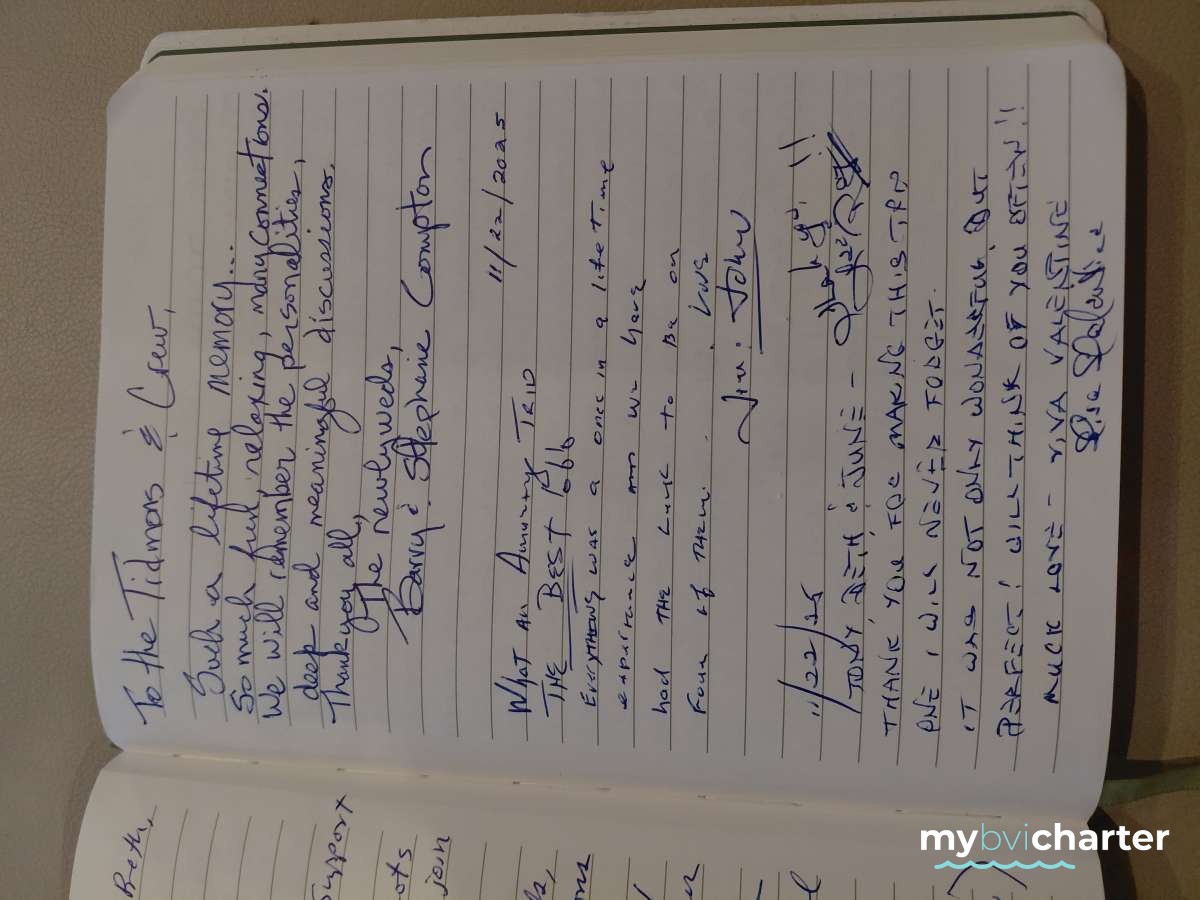 To the Tidmons & Crew,
Such a lifeting memory...
So much fun, relaxing, many Connections.
We will remember the personalities,
deep and meaningful discussions.
Thank you all,
The newlyweds,
Barry & Stephanie Compton
11/22/2025
What An Amazing Trip
THE BEST
Everything was a once in a lifetime
experience and we have
had THE Luck to Be on
Four of Them. Love
Jim & John
11/22/25
Thank you!!
TONY, BETH & JUNE -
THANK YOU FOR MAKING THIS TRIP
ONE I WILL NEVER FORGET.
IT WAS NOT ONLY WONDERFUL BUT
PERFECT! WILL THINK OF YOU OFTEN!!
MUCH LOVE - VIVA VALENTINE
Lisa Valentine
Beth,
Support
join
mybvicharter